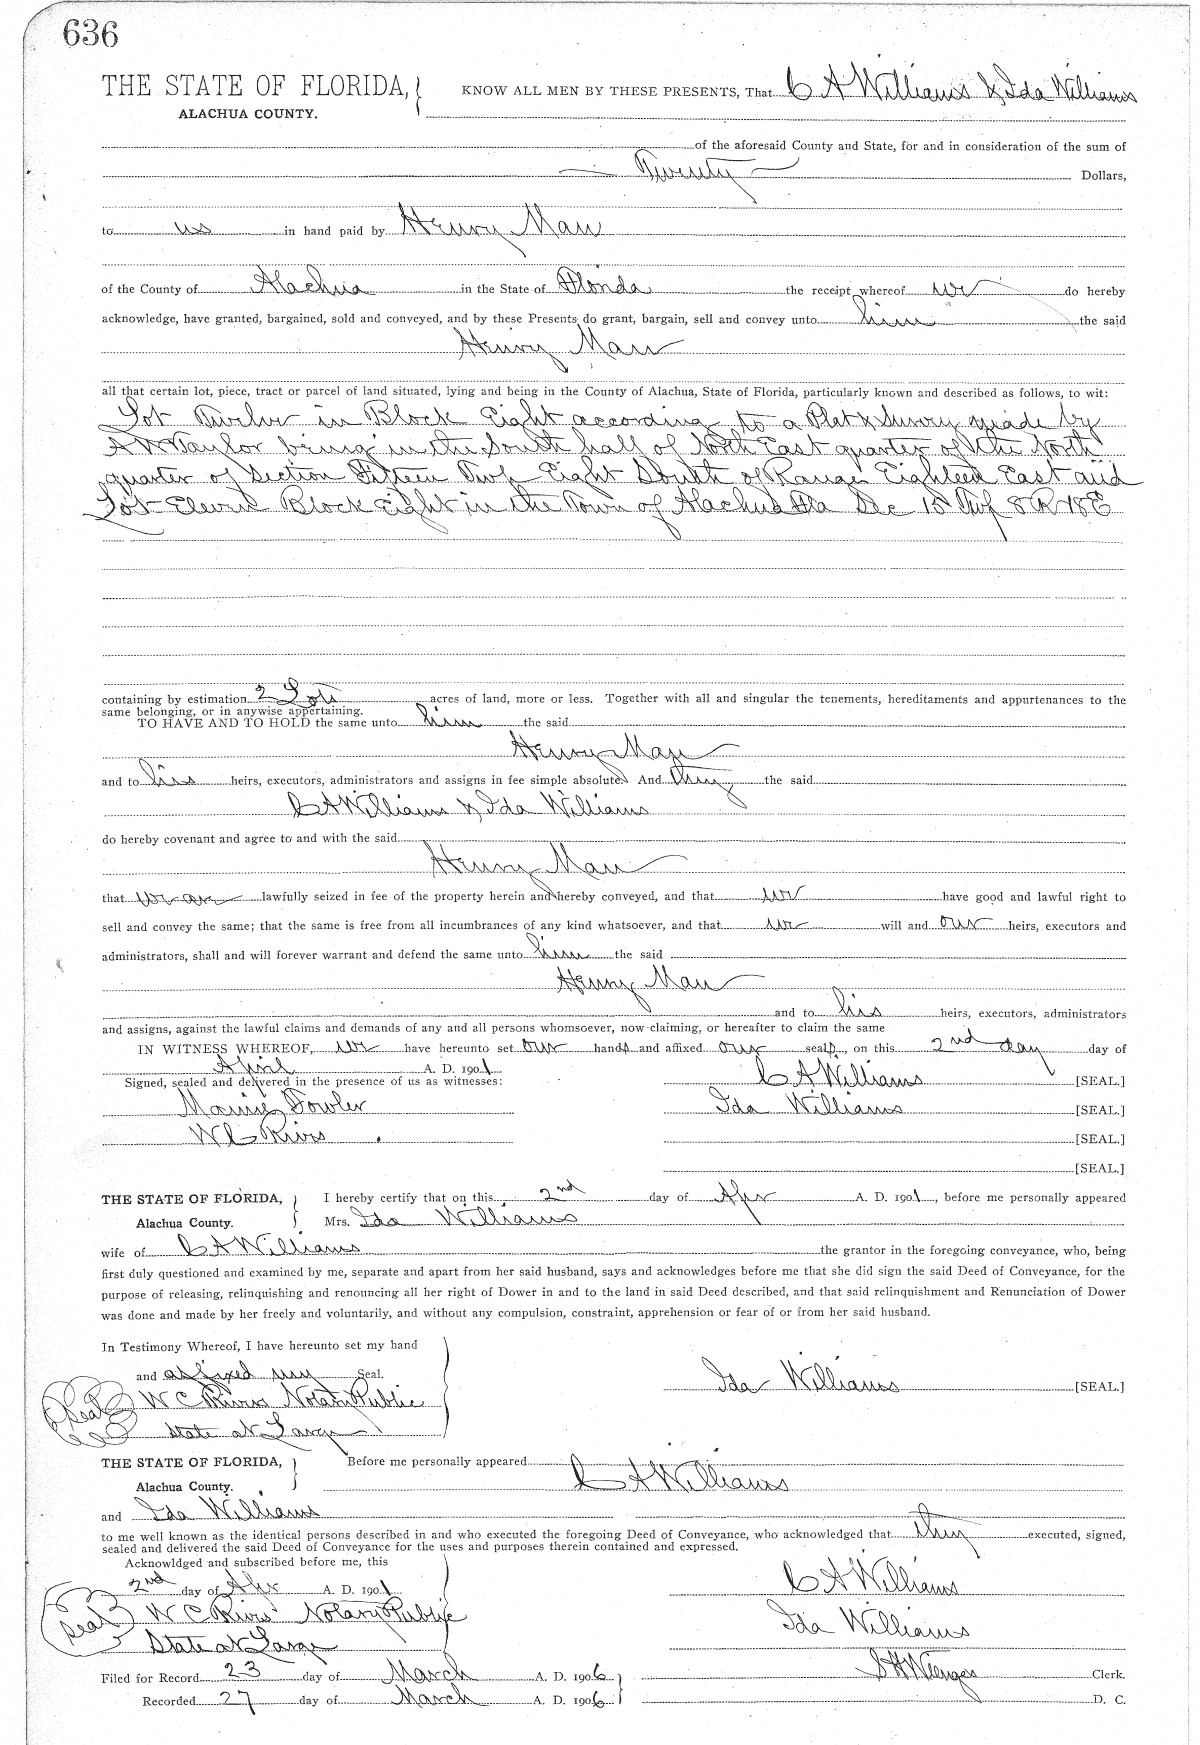 636
THE STATE OF FLORIDA, KNOW ALL MEN BY THESE PRESENTS, That C A Williams & Ida Williams
ALACHUA COUNTY.
of the aforesaid County and State, for and in consideration of the sum of
Twenty Dollars,
to us in hand paid by Henry Maw
of the County of Alachua in the State of Florida the receipt whereof we do hereby
acknowledge, have granted, bargained, sold and conveyed, and by these Presents do grant, bargain, sell and convey unto him the said
Henry Maw
all that certain lot, piece, tract or parcel of land situated, lying and being in the County of Alachua, State of Florida, particularly known and described as follows, to wit:
Lot Twelve in Block Eight according to a Plat & Survey made by
Taylor being in the South half of North East quarter of the North
quarter of Section Fifteen Twp Eight South of Range Eighteen East and
Lot Eleven Block Eight in the Town of Alachua Fla Sec 15 Twp 8 R 18 E
containing by estimation 2 Lots acres of land, more or less. Together with all and singular the tenements, hereditaments and appurtenances to the
same belonging, or in anywise appertaining.
TO HAVE AND TO HOLD the same unto him the said
Henry Maw
and to his heirs, executors, administrators and assigns in fee simple absolute. And they the said
C A Williams & Ida Williams
do hereby covenant and agree to and with the said
Henry Maw
that we are lawfully seized in fee of the property herein and hereby conveyed, and that we have good and lawful right to
sell and convey the same; that the same is free from all incumbrances of any kind whatsoever, and that we will and our heirs, executors and
administrators, shall and will forever warrant and defend the same unto him the said
Henry Maw
and to his heirs, executors, administrators
and assigns, against the lawful claims and demands of any and all persons whomsoever, now claiming, or hereafter to claim the same
IN WITNESS WHEREOF, we have hereunto set our hands and affixed our seals, on this 2nd day day of
April A. D. 1901 C A Williams [SEAL.]
Signed, sealed and delivered in the presence of us as witnesses:
Fowler Ida Williams [SEAL.]
W C Rivers [SEAL.]
[SEAL.]
THE STATE OF FLORIDA, I hereby certify that on this 2nd day of Apr A. D. 1901, before me personally appeared
Alachua County. Mrs. Ida Williams
wife of C A Williams the grantor in the foregoing conveyance, who, being
first duly questioned and examined by me, separate and apart from her said husband, says and acknowledges before me that she did sign the said Deed of Conveyance, for the
purpose of releasing, relinquishing and renouncing all her right of Dower in and to the land in said Deed described, and that said relinquishment and Renunciation of Dower
was done and made by her freely and voluntarily, and without any compulsion, constraint, apprehension or fear of or from her said husband.
In Testimony Whereof, I have hereunto set my hand
and affixed my Seal. Ida Williams [SEAL.]
seal W C Rivers Notary Public
State at Large
THE STATE OF FLORIDA, Before me personally appeared
Alachua County. C A Williams
and Ida Williams
to me well known as the identical persons described in and who executed the foregoing Deed of Conveyance, who acknowledged that they executed, signed,
sealed and delivered the said Deed of Conveyance for the uses and purposes therein contained and expressed.
Acknowldged and subscribed before me, this
2nd day of Apr A. D. 1901 C A Williams
seal W C Rivers Notary Public Ida Williams
State at Large
Filed for Record 23 day of March A. D. 1906 Clerk.
Recorded 27 day of March A. D. 1906 D. C.